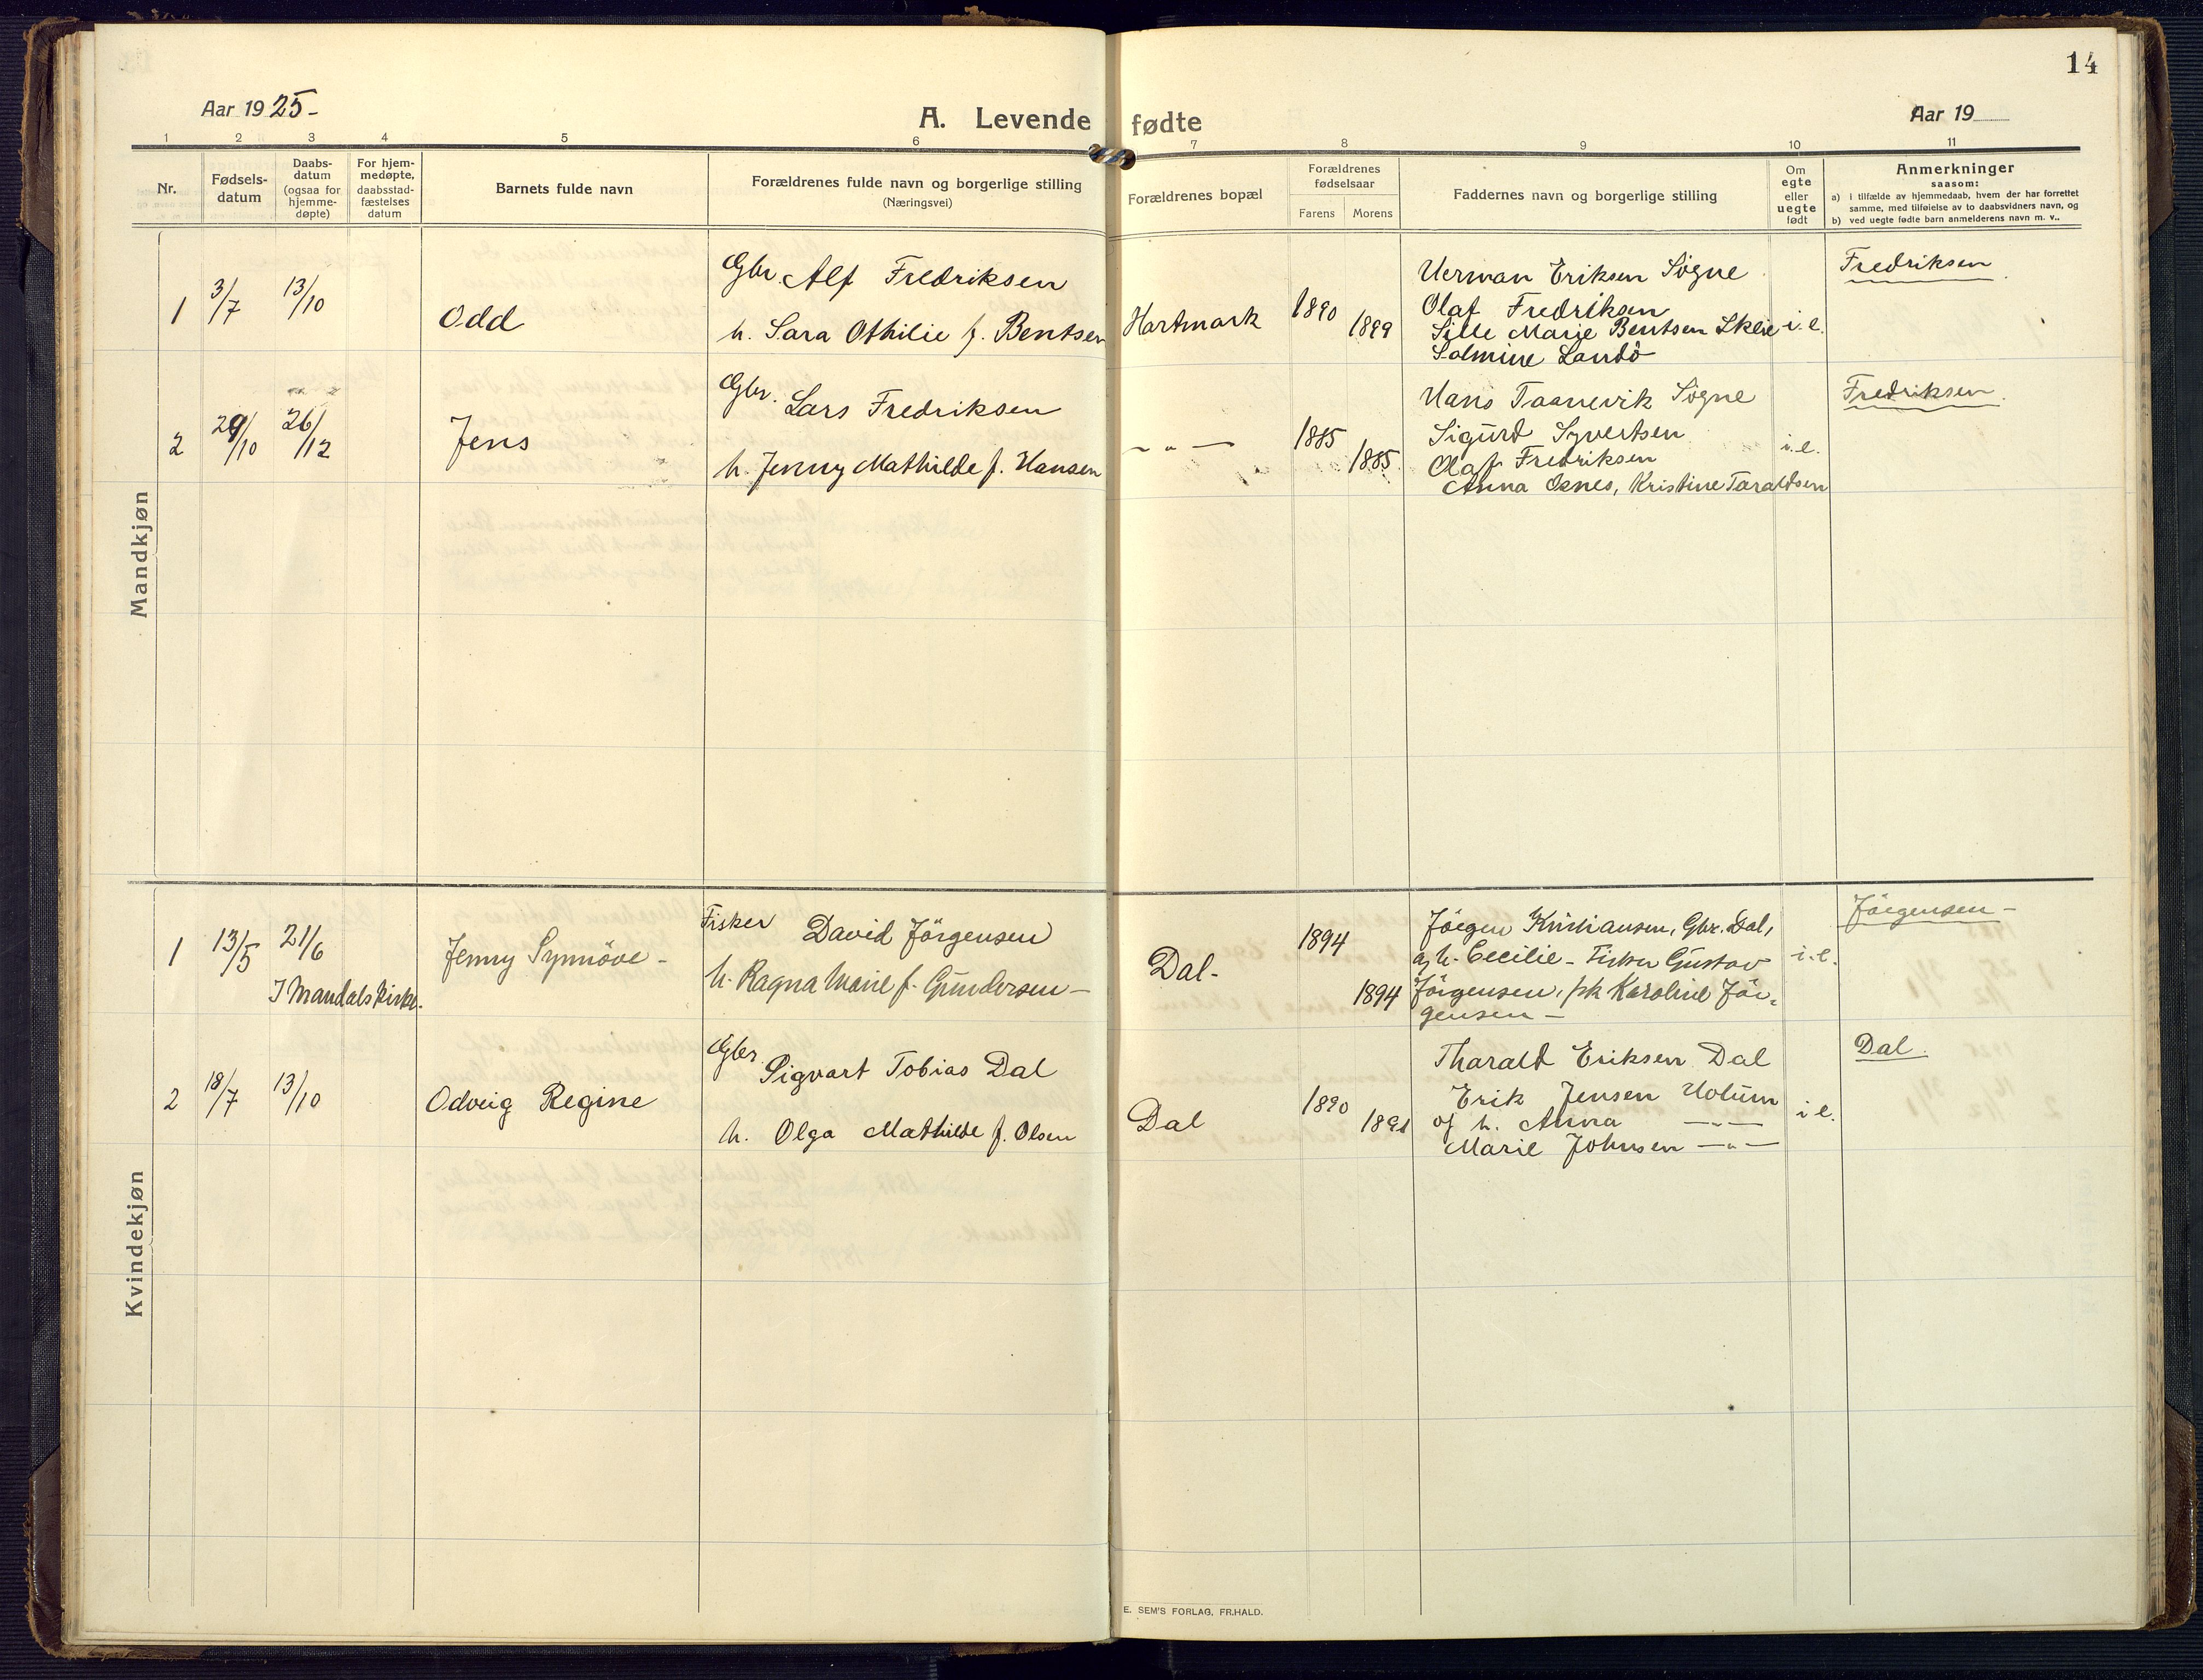 14
Aar 1925-
A. Levende fødte
Aar 19
1 2 3 4 5 6 7 8 9 10 11
Nr.
Fødsels-
datum
Daabs-
datum
(ogsaa for
hjemme-
døpte)
For hjem-
medøpte,
daabsstad-
fæstelses
datum
Barnets fulde navn
Forældrenes fulde navn og borgerlige stilling
(Næringsvei)
Forældrenes bopæl
Forældrenes
fødselsaar
Farens Morens
Faddernes navn og borgerlige stilling
Om
egte
eller
uegte
født
Anmerkninger
saasom:
a) i tilfælde av hjemmedaab, hvem der har forrettet
samme, med tilføielse av to daabsvidners navn, og
b) ved uegte fødte barn anmelderens navn m. v..
Mandkjøn
1 3/7 13/10 Odd
Gbr. Alf Fredriksen
h. Sara Othilie f. Bentsen
Hartmark 1890 1899
Herman Eriksen Søgne
Olaf Fredriksen
Sille Marie Bentsen Skeie
Salmine Landö
i. e.
Fredriksen
2 29/10 26/12 Jens
Gbr. Lars Fredriksen
h. Jenny Mathilde f. Hansen
— " — 1885 1885
Hans Taanevik Søgne
Sigurd Syvertsen
Olaf Fredriksen
Anna Osnes, Kristine Taraldsen
i. e.
Fredriksen
Kvindekjøn
1 13/5 21/6
I Mandals Kirke.
Jenny Synnöve -
Fisker David Jörgensen
h. Ragna Marie f. Gundersen -
Dal- 1894 1894
Jörgen Kristiansen, Gbr. Dal,
og h. Cecilie - Fisker Gustav
Jörgensen, pk Karoline Jör-
gensen -
i. e.
Jörgensen -
2 18/7 13/10 Odveig Regine
Gbr Sigvart Tobias Dal
h. Olga Mathilde f. Olsen
Dal 1890 1891
Tharald Eriksen Dal
Erik Jensen Holum
og h. Anna — " —
Marie Johnsen — " —
i e.
Dal.
E. SEM'S FORLAG, FR.HALD.